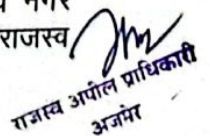 नगर
राजस्व
राजस्व अपील प्राधिकारी
अजमेर